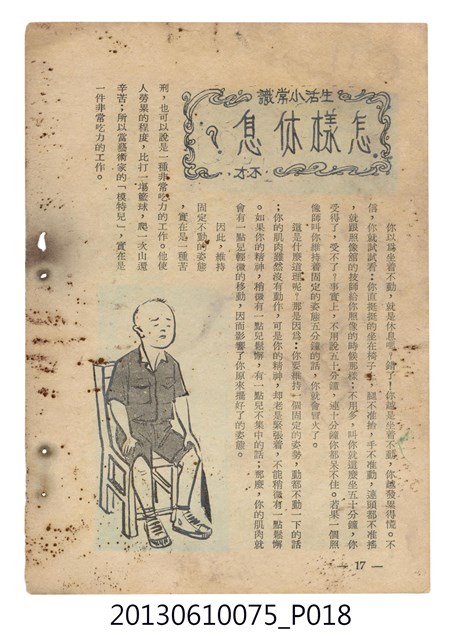 生活小常識
怎樣休息？
林
你以爲坐着不動，就是休息嗎？錯了！你越是坐着不動，你越發累得慌。不
信，你就試試看：你直挺挺的坐在椅子上，腿不准抬，手不准動，連頭都不准搖
，就跟照像館的技師給你照像的時候那樣；不用多，叫你就這麼坐五十分鐘，你
受得了，受不了？事實上，不用說五十分鐘，連十分鐘你都呆不住。若果一個照
像師叫你維持着固定的姿態五分鐘的話，你就會冒火了。
這是什麼道理呢？那是因爲：你要維持一個固定的姿勢，動都不動一下的話
；你的肌肉雖然沒有動作，可是你的精神，却老是緊張着，不能稍微有一點鬆懈
。如果你的精神，稍微有一點兒鬆懈，有一點兒不集中的話；那麼，你的肌肉就
會有一點兒輕微的移動，因而影響了你原來擺好了的姿態。
因此，維持
固定不動的姿態
，實在是一種苦
刑，也可以說是一種非常吃力的工作。他使
人勞累的程度，比打一場籃球，爬一次山還
辛苦；所以當藝術家的「模特兒」，實在是
一件非常吃力的工作。
— 17 —
20130610075_P018